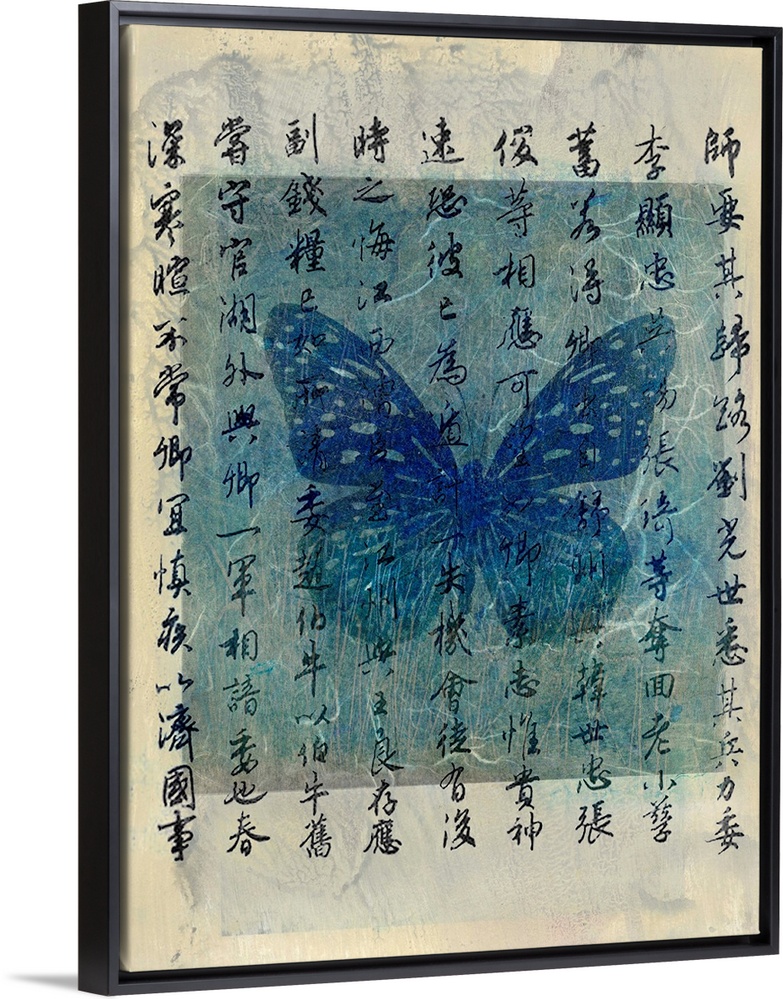 師要其歸路劉光世悉其兵力委
李顯忠吳錫張琦等奪回老小孽
畜若得卿出自舒州與韓世忠張
俊等相應可望如卿素志惟貴神
速恐彼已為遁計一失機會徒有後
時之悔江西漕臣至江州與王良存應
副錢糧已如所請委趙伯牛以伯牛舊
嘗守官湖外與卿一軍相諳委也春
深寒暄不常卿宜慎疾以濟國事